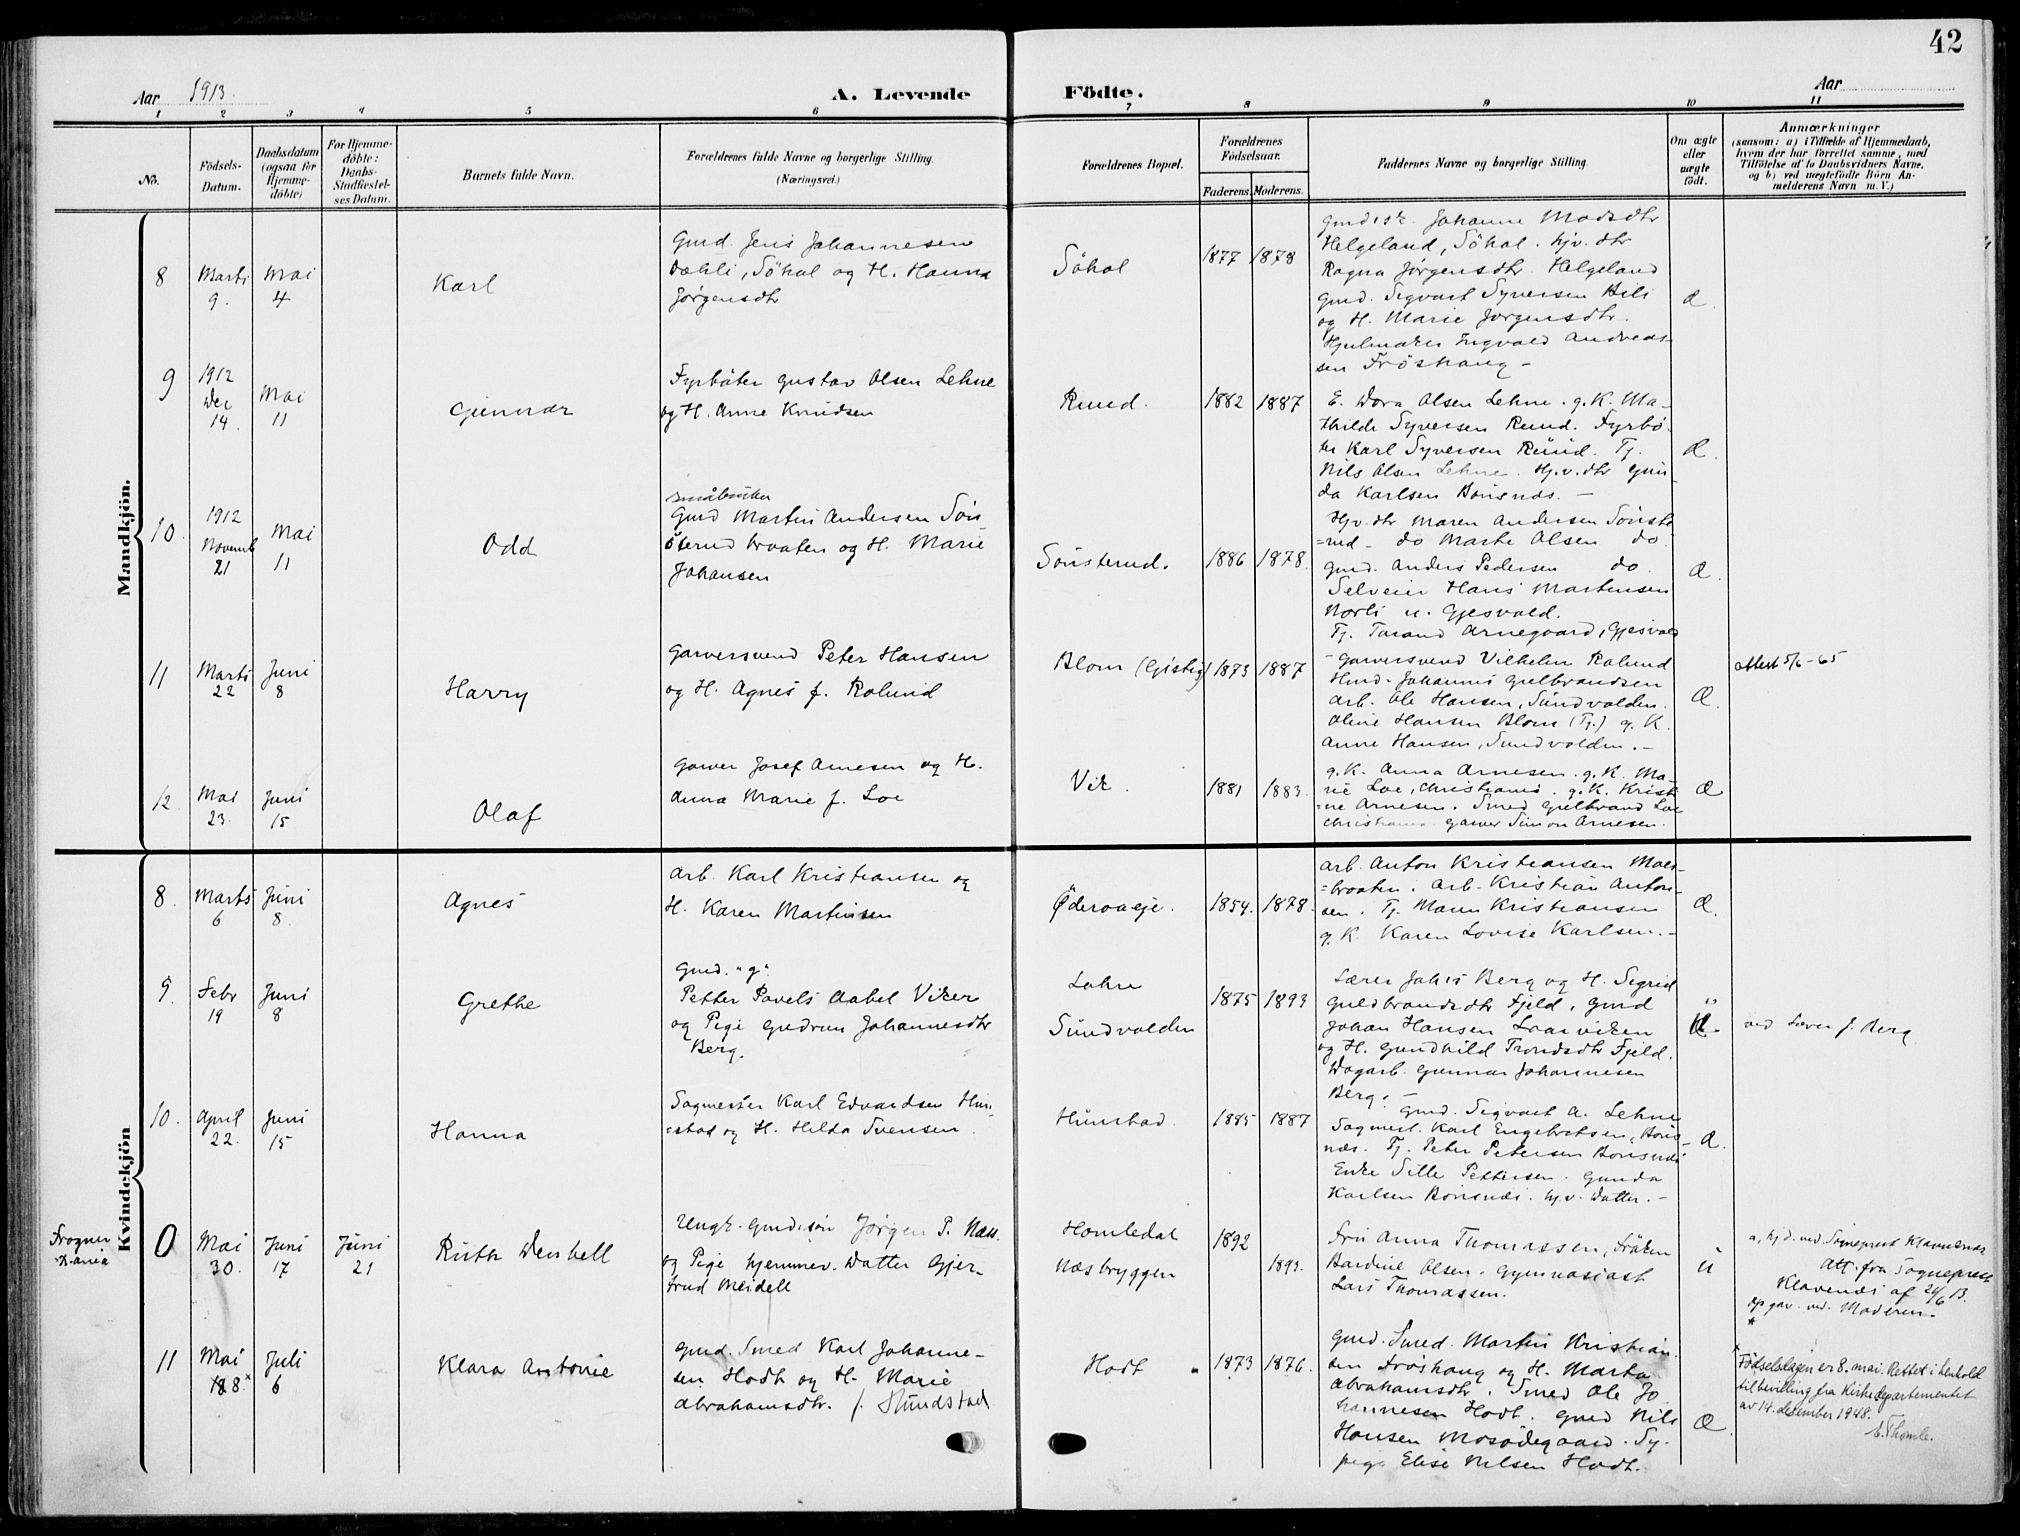 42
Aar 1913
A. Levende
Födte.
Aar
1 2 3 4 5 6 7 8 9 10 11
No.
Födsels-
Datum.
Daabsdatum
(ogsaa for
Hjemme-
döbte)
For Hjemme-
döbte:
Daabs-
Stadfæstel-
ses Datum.
Barnets fulde Navn.
Forældrenes fulde Navne og borgerlige Stilling.
(Næringsvei.)
Forældrenes Bopæl.
Forældrenes
Födselsaar.
Faderens.
Moderens.
Faddernes Navne og borgerlige Stilling.
Om ægte
eller
uægte
födt.
Anmærkninger
(saasom: a) i Tilfælde af Hjemmedaab,
hvem der har forrettet samme, med
Tilföielse af to Daabsvidners Navne.
og b) ved uægtefödte Börn An-
melderens Navn m. V.)
Mandkjön.
8
Marts
9.
Mai
4
Karl
Gmd. Jens Johannesen
Dæhli, Söhol og H. Hanna
Jørgensdtr
Söhol
1877
1878
Johanne Madsdtr
Helgeland, Söhol. hjv. dtr
Ragna Jørgensdtr. Helgeland
Gmd. Sigvart Syversen Bili
og H. Marie Jørgensdtr.
Hjulmaker Ingvald Andreas-
sen Fröshaug -
Æ.
9
1912
Dec
14.
Mai
11
Gunnar
Fyrböter Gustav Olsen Lehne
og H. Anne Knudsen
Rund.
1882
1887
E. Dora Olsen Lehne. g. K. Ma-
thilde Syversen Rund. Fyrbö-
ter Karl Syversen Rund. Tj.
Nils Olsen Lehne. Hj.v. dtr Gun-
da Karlsen Bönsnæs. -
Æ.
10.
1912
Novemb
21
Mai
11
Odd
småbruker
Gmd Martin Andersen Söns-
terud braaten og H. Marie
Johansen
Sönsterud.
1886
1878.
Hjv. dtr Maren Andersen Sönste
=rud - do Marte Olsen do.
Gmd. Anders Pedersen do
Selveier Hans Martinsen
Norli n. Gjesvold.
Tj. Tarand Arnegaard, Gjesvold
Æ.
11
Marts
22
Juni
8
Harry
Garversvend Peter Hansen
og H. Agnes f. Rolund
Blom (Gjestig)
1873
1887
- Garversvend Vilhelm Rolund
Hmd. Johannes Gulbrandsen
Arb. Ole Hansen, Sundvolden.
Oline Hansen Blom (Tj.) g. K.
Anne Hansen, Sundvolden. -
Æ.
Attest 5/6-65
12.
Mai
23.
Juni
15
Olaf
Garver Josef Arnesen og H.
Anna Marie f. Loe
Vik.
1881
1883.
g. K. Anna Arnesen. g. K. Ma-
rie Loe, Christiania. g. K. Kristi
=ne Arnesen. Smed Gulbrand Loe
Christiania. Garver Simon Arnesen.
Æ
Kvindekjön
8.
Marts
6
Juni
8
Agnes
Arb. Karl Kristiansen og
H. Karen Martinsen
Öderaaeje.
1854.
1878.
Arb. Anton Kristiansen Moes-
=braaten. Arb. Kristian Anton-
sen. Tj. Maren Kristiansen
g. K. Karen Lovise Karlsen. -
Æ.
9.
Febr
19
Juni
8
Grethe
Gmd. "g".
Petter Povels Aabel Viker
og Pige Gudrun Johannesdtr
Berg.
Lohre
Sundvolden
1875
1893
Lærer Johs Berg og H. Sigrid
Guldbrandsdtr Fjeld, Gmd
Johan Hansen Loreviken
og H. Gundhild Trondsdtr Fjeld.
Dagarb. Gunnar Johannesen
Berg. -
ved Lærer J. Berg
10.
April
22.
Juni
15
Hanna
Sagmester Karl Edvardsen Hun-
=stad og H. Hilda Svensen.
Hunstad.
1885
1887
Gmd. Sigvart A. Lehne
Sagmest. Karl Engebretsen, Böns-
næs. Tj. Peter Petersen Bönsnæs
Enke Sille Pettersen. Gunda
Karlsen Bönsnæs. hj. v. Datter. -
Æ.
Frogner
0
Mai
30.
Juni
17
Juni
21
Ruth Wenkell
Ungk. Gmdssön Jørgen P. Næss.
og Pige hjemmev. Datter Gjer-
trud Meidell
Homledal
Næsbryggen
1892
1893.
Fru Anna Thomassen, Fröken
Bardine Olsen. Gymnasiast
Lars Thomassen.
u
a, hjd. ved Sogneprest Klavenæs
Att. fra Sogneprest
Klavenæs af 24/6 13.
Opgav. ved. Moderen.
*
11
Mai
8*
Juli
6
Klara Antonie
Gmd. Smed Karl Johanne-
sen Hodt og H. Marie
Abrahamsdtr. f. Hundstad.
Hodt
1873
1876.
Gmd. Smed. Martin Kristian-
sen Fröshaug og H. Marta
Abrahamsdtr. Smed Ole Jo
hannesen Hodt. Gmd Nils
Hansen Mosödegaard. Sy-
pige Elise Nilsen Hodt.
Æ.
* Fødselsdagen er 8. mai. Rettet i henhold
til bevilling fra Kirkedepartementet
av 14. desember 1948.
E. Thomle.